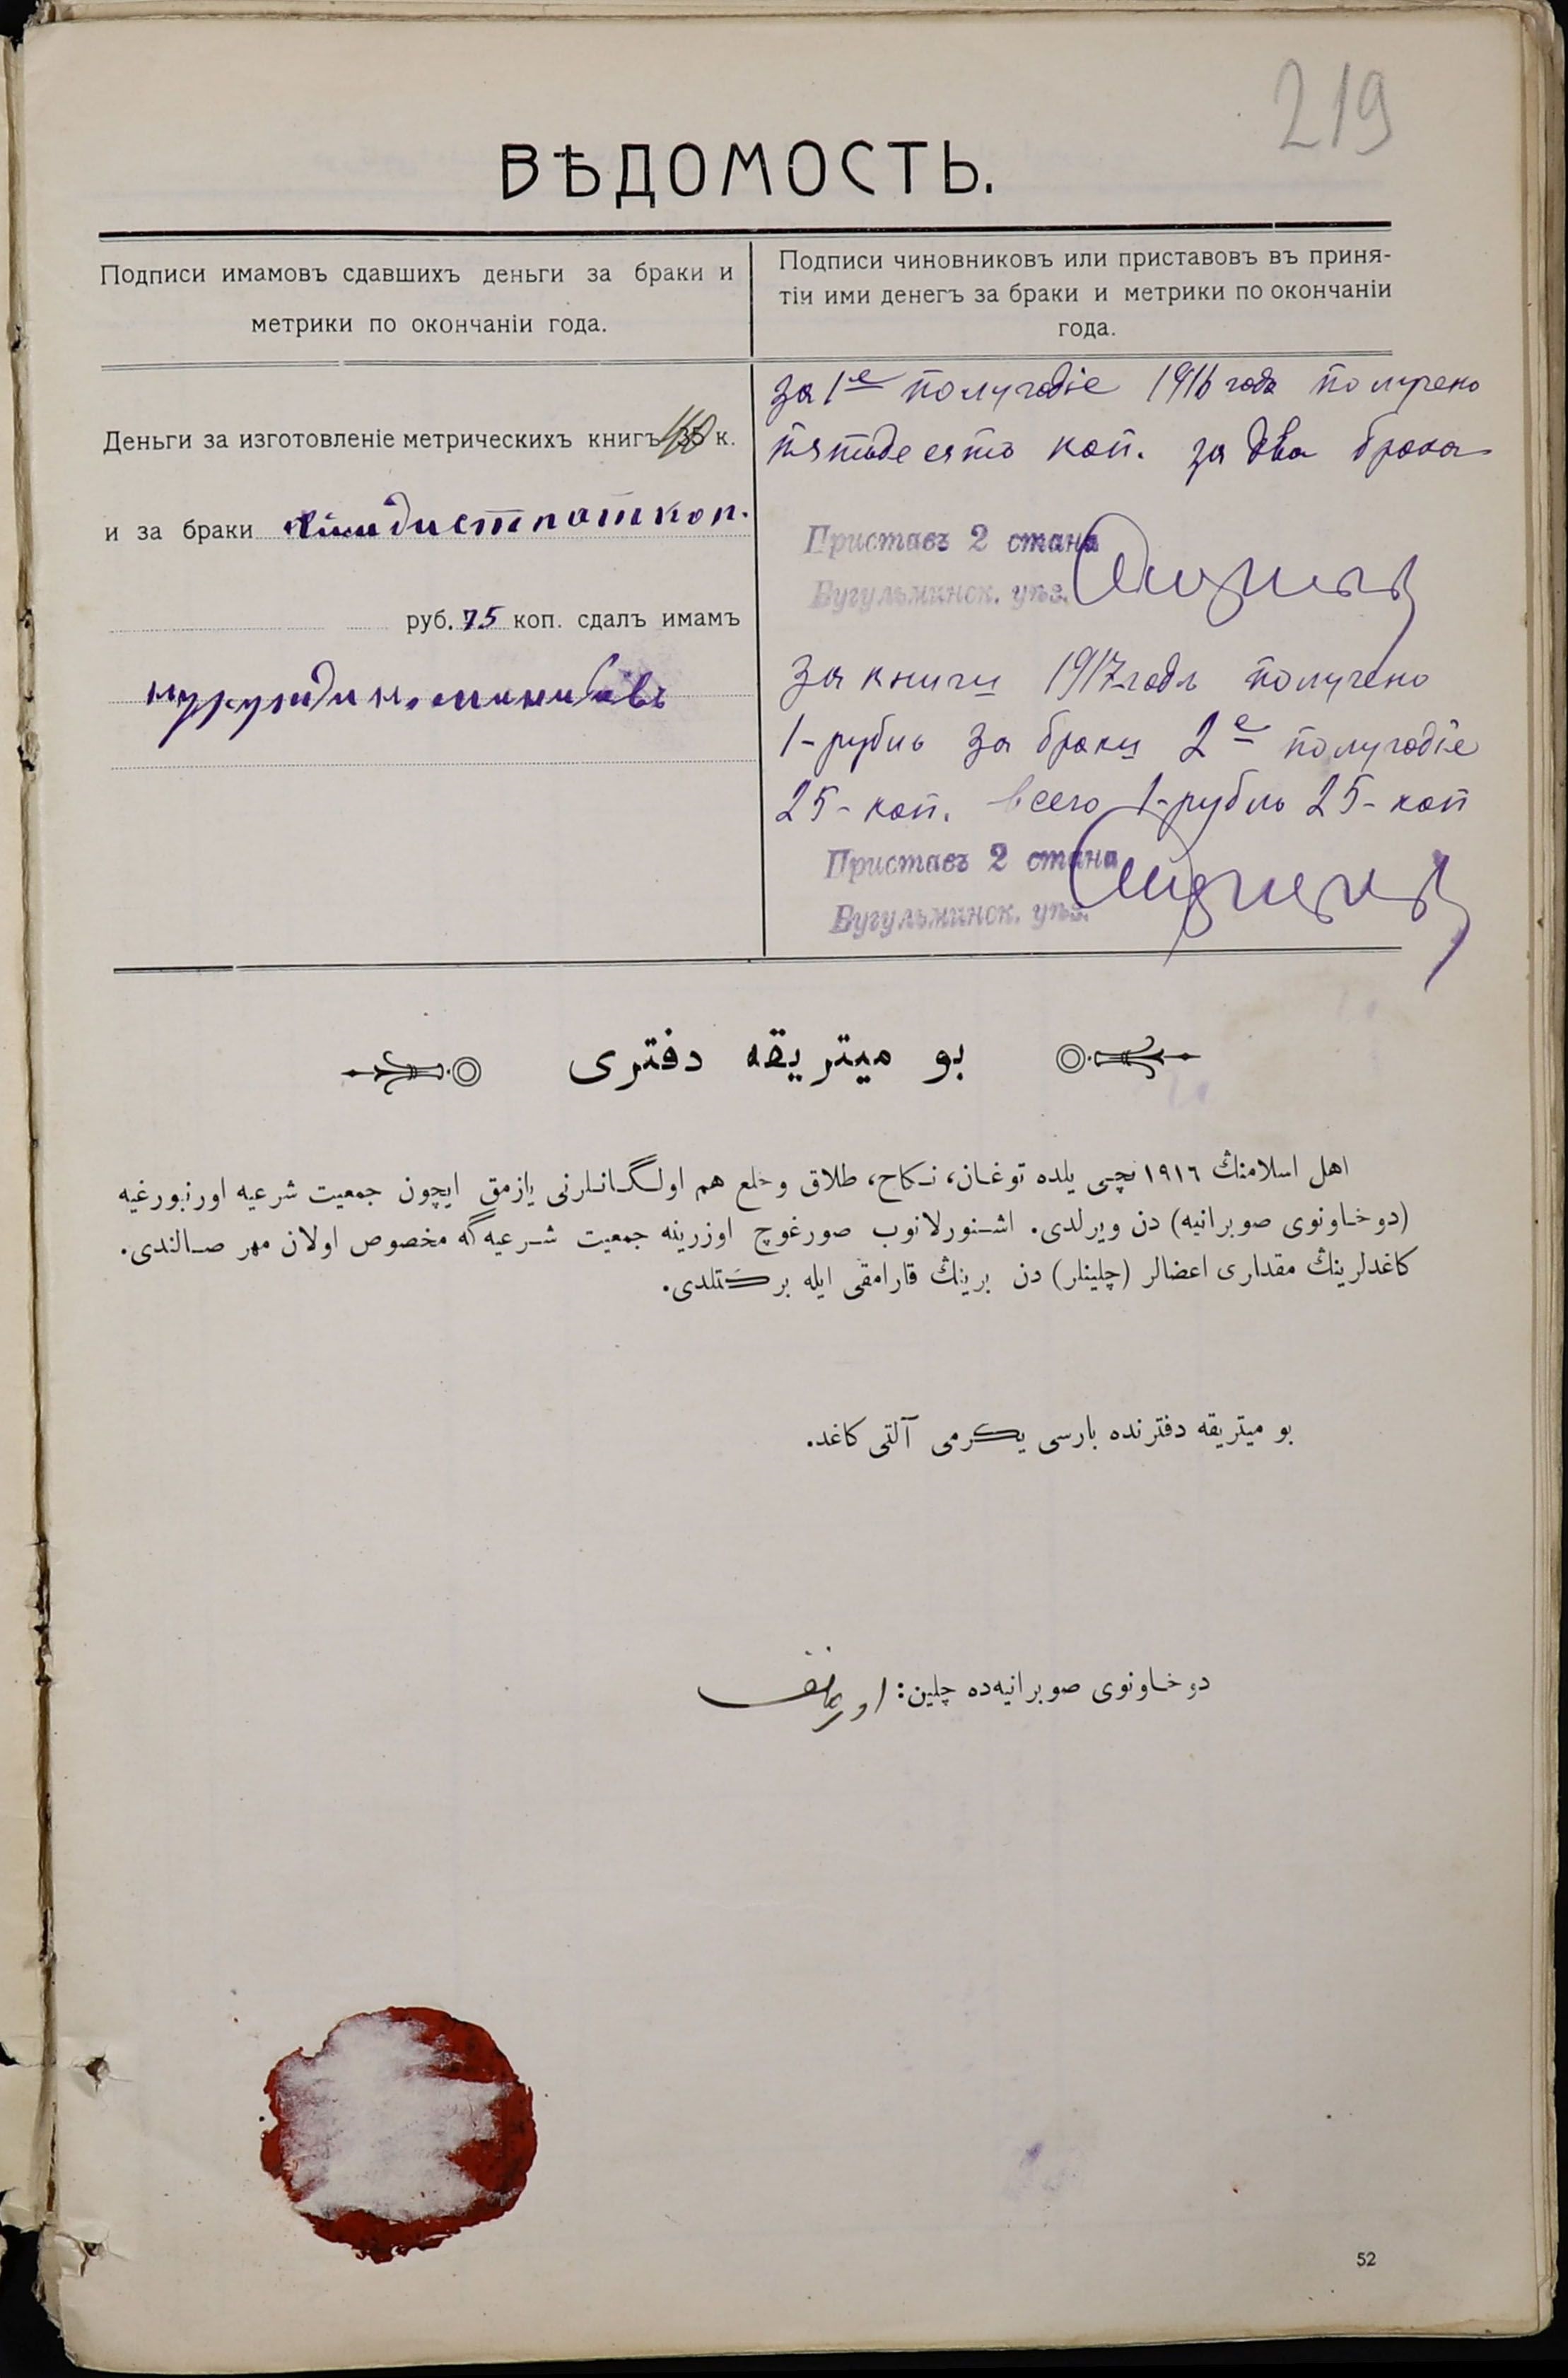 219
ВѢДОМОСТЬ.
Подписи имамовъ сдавшихъ деньги за браки и
метрики по окончаніи года.
Подписи чиновниковъ или приставовъ въ приня-
тіи ими денегъ за браки и метрики по окончаніи
года.
Деньги за изготовленіе метрическихъ книгъ 35 к.
и за браки коп.
руб. 75 коп. сдалъ имамъ
за 1е полугодіе 1916 года получено
пятьдесятъ коп. за два брака
Приставъ 2 стана
Бугульминск. уѣз.
За книги 1917 года получено
1-рубль за браки 2е полугодіе
25-коп. всего 1-рубль 25-коп
Приставъ 2 стана
Бугульминск. уѣз.
بو ميتريقه دفترى
اهل اسلامنڭ ١٩١٦ نچى يلده توغان، نكاح، طلاق وخلع هم اولگانلرنى يازمق ايچون جمعيت شرعيه اورنبورغيه
(دوخاونوى صوبرانيه) دن ويرلدى. اشنورلانوب صورغوچ اوزرينه جمعيت شرعيه گه مخصوص اولان مهر صالندى.
كاغدلرينڭ مقدارى اعضالر (چلينلر) دن برينڭ قارامقى ايله بركتلدى.
بو ميتريقه دفترنده بارسى يكرمى آلتى كاغد.
دوخاونوى صوبرانيه ده چلين:
52